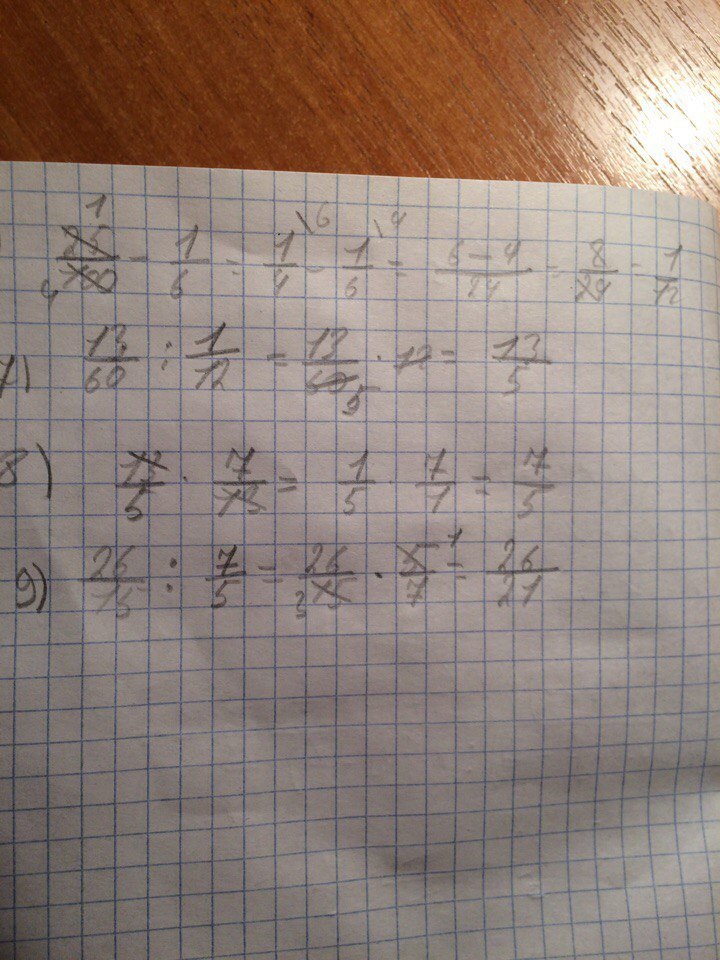 25/100 - 1/6 = 1/4 \6 - 1/6 \4 = 6-4/24 = 8/24 = 1/12
7) 13/60 : 1/12 = 13/60 · 12 = 13/5
8) 13/5 · 7/13 = 1/5 · 7/1 = 7/5
9) 26/15 : 7/5 = 26/15 · 5/7 = 26/21